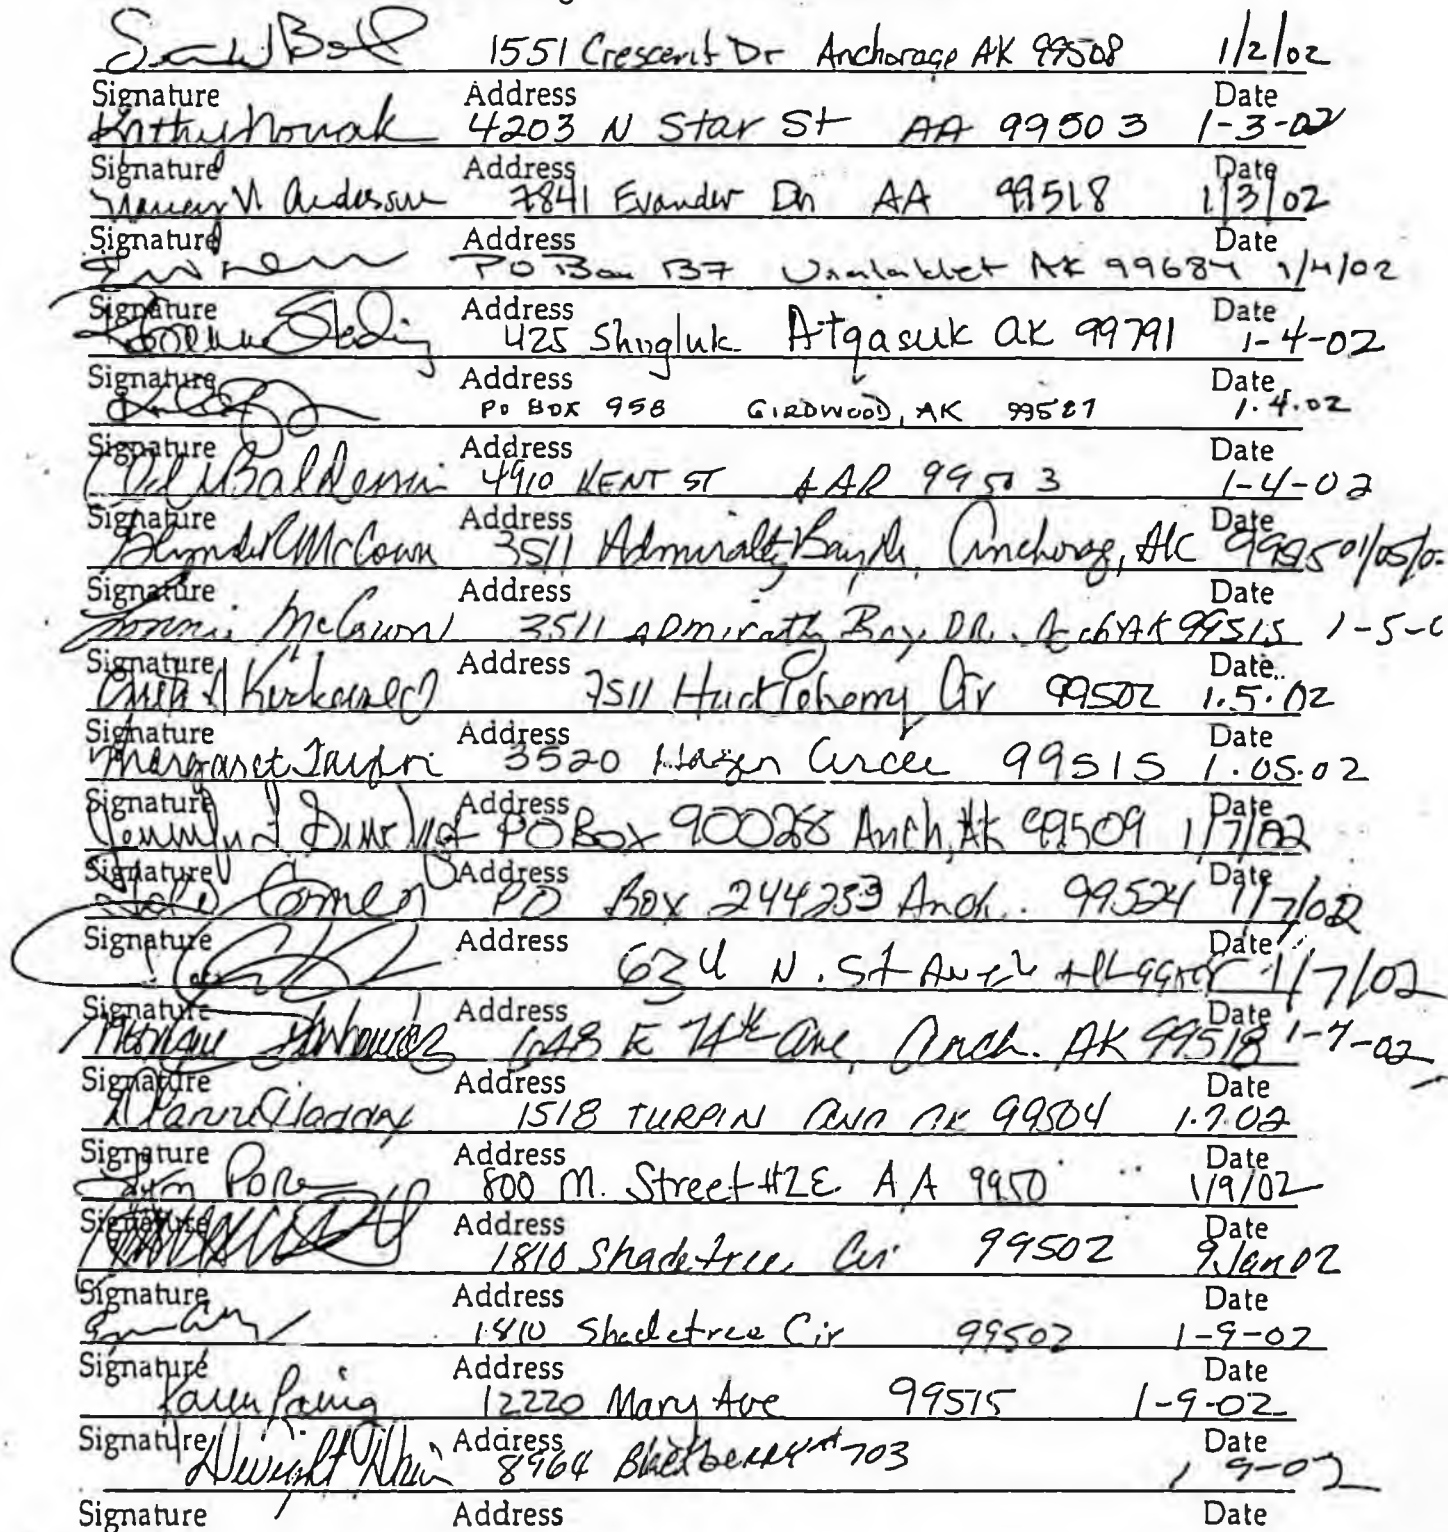 1551 Crescent Dr Anchorage AK 99508 1/2/02
Signature Address Date
Kathy Novak 4203 N Star St AA 99503 1-3-02
Signature Address Date
Nancy N Anderson 7841 Evander Dr AA 99518 1/3/02
Signature Address Date
PO Box 137 Unalakleet AK 99684 1/4/02
Signature Address Date
425 Shugluk Atqasuk ak 99791 1-4-02
Signature Address Date
PO BOX 958 GIRDWOOD, AK 99587 1.4.02
Signature Address Date
4910 KENT ST 99503 1-4-02
Signature Address Date
McCown 3511 Admiralty Bay Dr, Anchorag, AK
Signature Address Date
McCown 3511 ADmiralty Bay DR. AK 99515
Signature Address Date
7511 Huckleberry Cir 99502 1.5.02
Signature Address Date
Margaret Taylor 3520 Hazen Circle 99515 1.05.02
Signature Address Date
PO Box 90028 Anch, AK 99509 1/7/02
Signature Address Date
PO Box 244253 Anch. 99524 1/7/02
Signature Address Date
634 N. St 1/7/02
Signature Address Date
E 74th Ave, Anch. AK 99518 1-7-02
Signature Address Date
1518 TURPIN AK 99504 1.7.02
Signature Address Date
800 M. Street #2E. AA 9950 1/9/02
Signature Address Date
1810 Shadetree Cir 99502 9 Jan 02
Signature Address Date
1810 Shadetree Cir 99502 1-9-02
Signature Address Date
Karen 12220 Mary Ave 99515 1-9-02
Signature Address Date
Dwight 8964 Blackberry #703 1-9-02
Signature Address Date